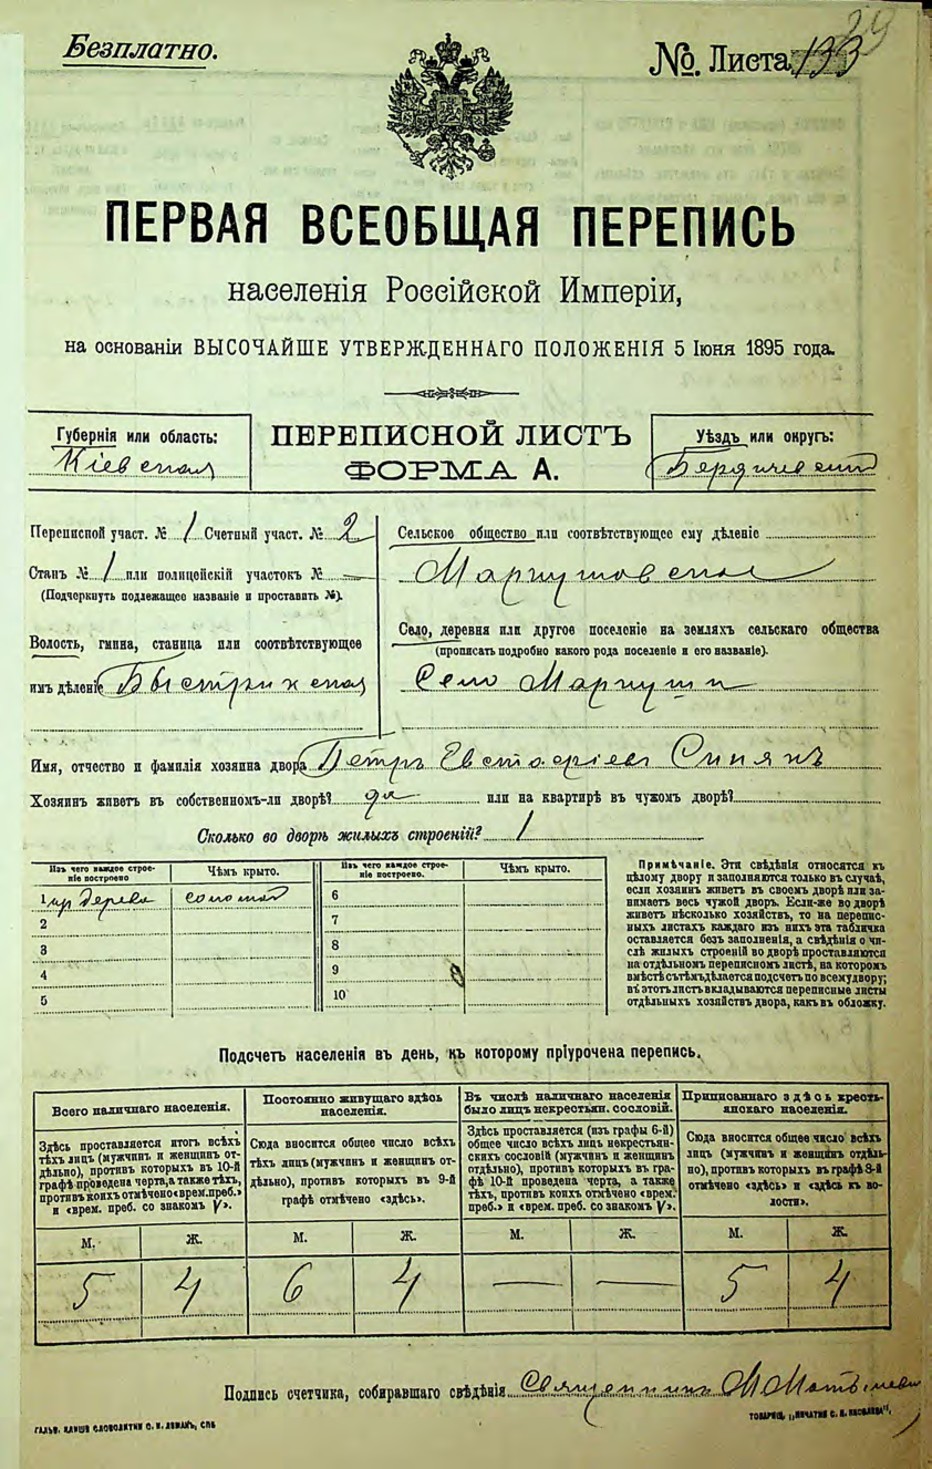 Безплатно.
№. Листа 133
ПЕРВАЯ ВСЕОБЩАЯ ПЕРЕПИСЬ
населенія Россійской Имперіи,
на основаніи ВЫСОЧАЙШЕ УТВЕРЖДЕННАГО ПОЛОЖЕНІЯ 5 Іюня 1895 года.
Губернія или область:
Кіевская
ПЕРЕПИСНОЙ ЛИСТЪ
ФОРМА А.
Уѣздъ или округъ:
Бердичевский
Переписной участ. № 1 Счетный участ. № 2
Станъ № 1 или полицейскій участокъ № —
(Подчеркнуть подлежащее названіе и проставить №).
Волость, гмина, станица или соотвѣтствующее
имъ дѣленіе Быстрикская
Сельское общество или соотвѣтствующее ему дѣленіе
Маркушовская
Село, деревня или другое поселеніе на земляхъ сельскаго общества
(прописать подробно какого рода поселеніе и его названіе).
Село Маркуши
Имя, отчество и фамилія хозяина двора Петръ Евстафіевъ Синякъ
Хозяинъ живетъ въ собственномъ-ли дворѣ? да или на квартирѣ въ чужомъ дворѣ?
Сколько во дворѣ жилыхъ строеній? 1
Изъ чего каждое строеніе построено
Чѣмъ крыто.
Изъ чего каждое строеніе построено.
Чѣмъ крыто.
1 дерева соломой
2
3
4
5
6
7
8
9
10
Примѣчаніе. Эти свѣдѣнія относятся къ
цѣлому двору и заполняются только въ случаѣ,
если хозяинъ живетъ въ своемъ дворѣ или за-
нимаетъ весь чужой дворъ. Если-же во дворѣ
живетъ нѣсколько хозяйствъ, то на перепис-
ныхъ листахъ каждаго изъ нихъ эта табличка
оставляется безъ заполненія, а свѣдѣнія о чи-
слѣ жилыхъ строеній во дворѣ проставляются
на отдѣльномъ переписномъ листѣ, на которомъ
вмѣстѣ съ тѣмъ дѣлается подсчетъ по всему двору;
въ этотъ листъ вкладываются переписные листы
отдѣльныхъ хозяйствъ двора, какъ въ обложку.
Подсчетъ населенія въ день, къ которому пріурочена перепись.
Всего наличнаго населенія.
Здѣсь проставляется итогъ всѣхъ
тѣхъ лицъ (мужчинъ и женщинъ от-
дѣльно), противъ которыхъ въ 10-й
графѣ проведена черта, а также тѣхъ,
противъ коихъ отмѣчено «врем. преб.»
и «врем. преб. со знакомъ V».
Постоянно живущаго здѣсь
населенія.
Сюда вносится общее число всѣхъ
тѣхъ лицъ (мужчинъ и женщинъ от-
дѣльно), противъ которыхъ въ 9-й
графѣ отмѣчено «здѣсь».
Въ числѣ наличнаго населенія
было лицъ некрестьян. сословій.
Здѣсь проставляется (изъ графы 6-й)
общее число всѣхъ лицъ некрестьян-
скихъ сословій (мужчинъ и женщинъ
отдѣльно), противъ которыхъ въ гра-
фѣ 10-й проведена черта, а также
тѣхъ, противъ коихъ отмѣчено «врем.
преб.» и «врем. преб. со знакомъ V».
Приписаннаго здѣсь кресть-
янскаго населенія.
Сюда вносится общее число всѣхъ
лицъ (мужчинъ и женщинъ отдѣль-
но), противъ которыхъ въ графѣ 8-й
отмѣчено «здѣсь» и «здѣсь къ во-
лости».
М. Ж. М. Ж. М. Ж. М. Ж.
5 4 6 4 — — 5 4
Подпись счетчика, собиравшаго свѣдѣнія Священникъ
ГАЛЬВ. КЛИШЕ СЛОВОЛИТНИ О. И. ЛЕМАНЪ, СПБ